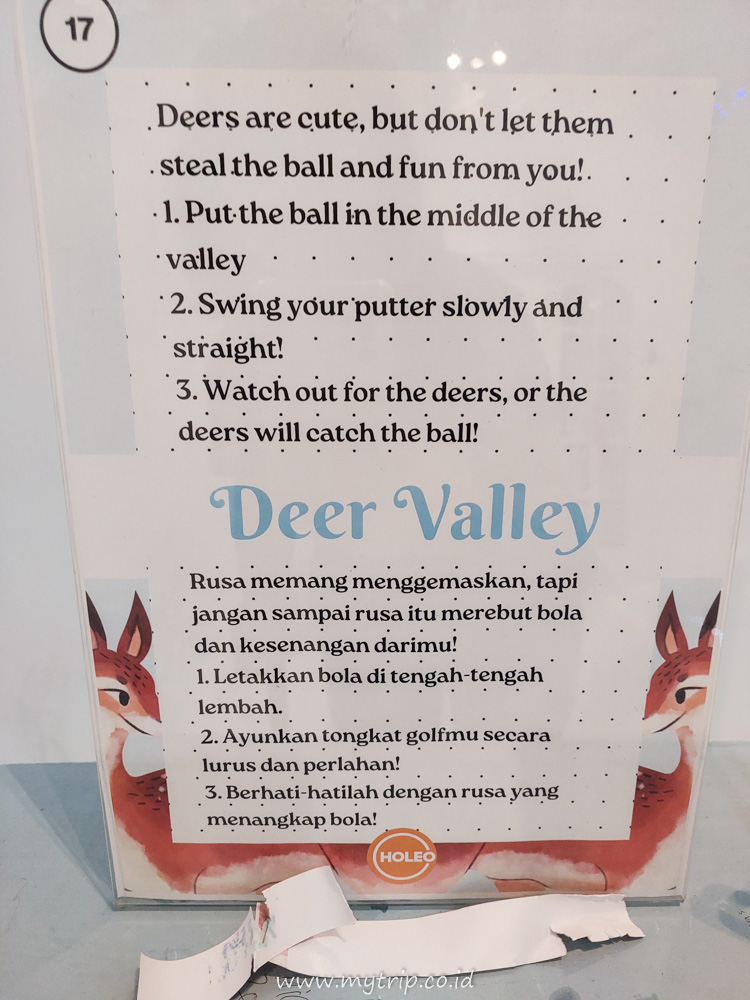 17
Deers are cute, but don't let them
steal the ball and fun from you!
1. Put the ball in the middle of the
valley
2. Swing your putter slowly and
straight!
3. Watch out for the deers, or the
deers will catch the ball!
Deer Valley
Rusa memang menggemaskan, tapi
jangan sampai rusa itu merebut bola
dan kesenangan darimu!
1. Letakkan bola di tengah-tengah
lembah.
2. Ayunkan tongkat golfmu secara
lurus dan perlahan!
3. Berhati-hatilah dengan rusa yang
menangkap bola!
HOLEO
www.mytrip.co.id